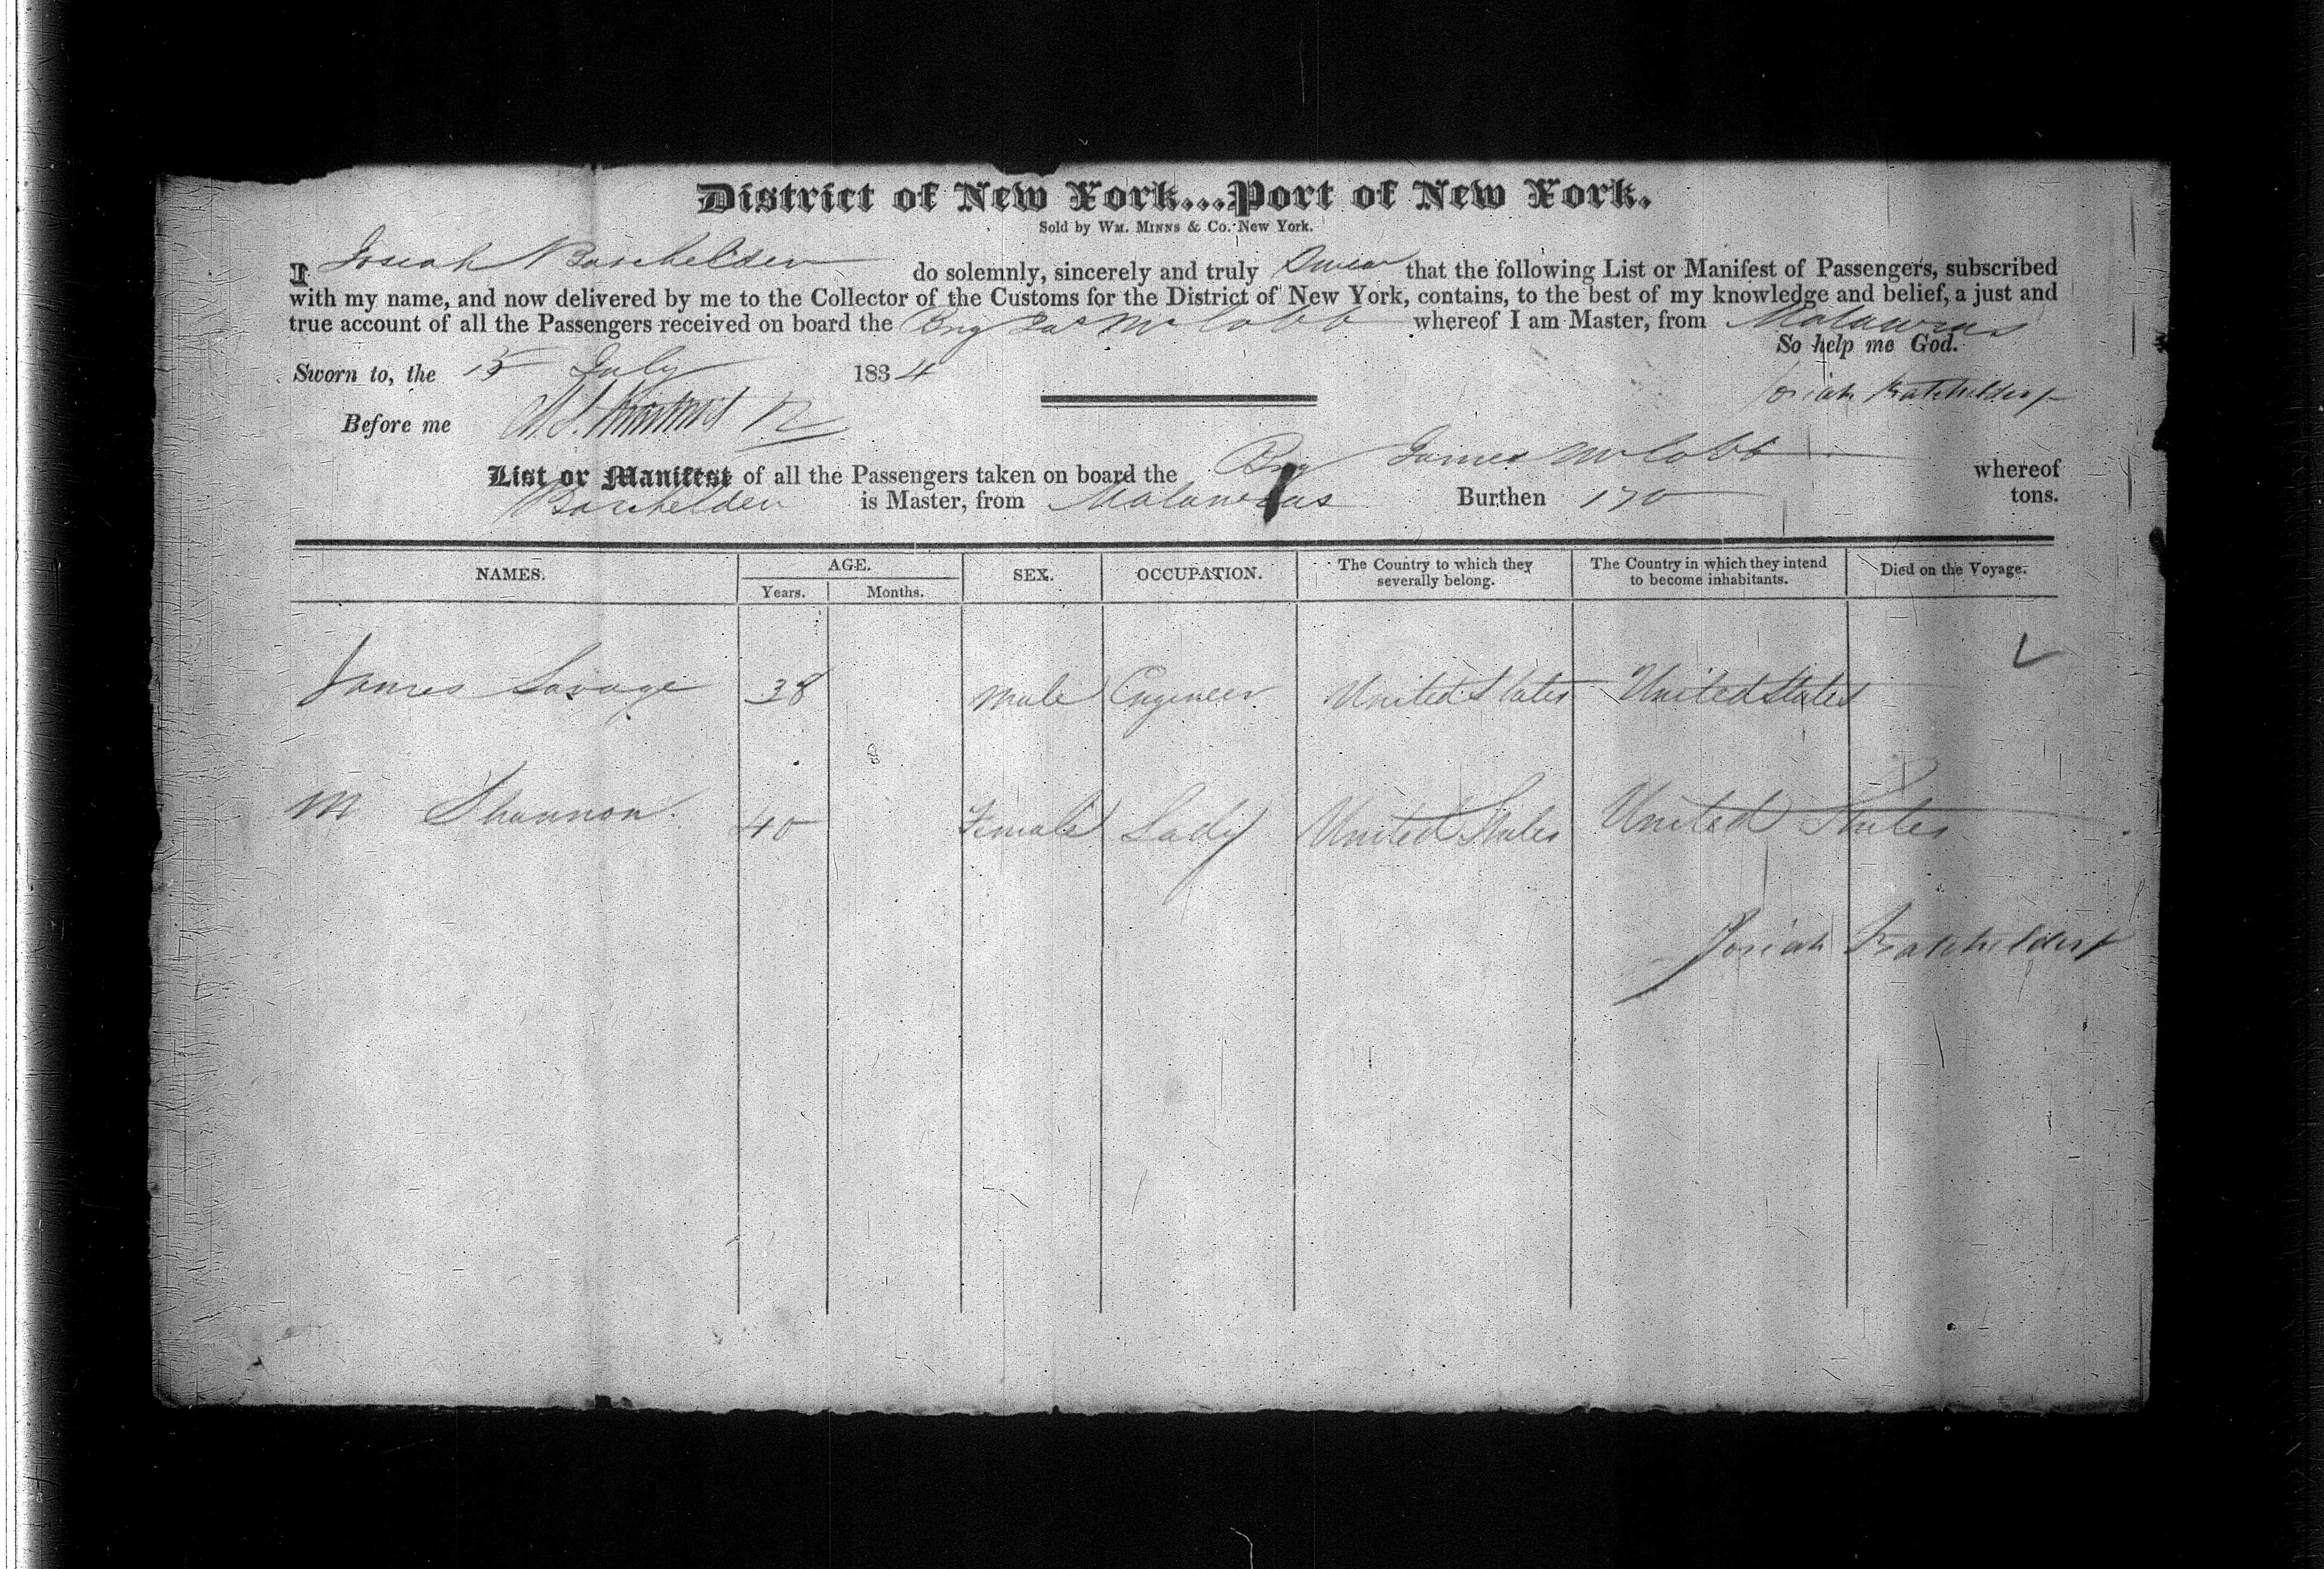 District of New York...Port of New York.
Sold by WM. MINNS & Co. New York.
I Josiah Bacchelder do solemnly, sincerely and truly Swear that the following List or Manifest of Passengers, subscribed
with my name, and now delivered by me to the Collector of the Customs for the District of New York, contains, to the best of my knowledge and belief, a just and
true account of all the Passengers received on board the Brig Jas McCobb whereof I am Master, from
So help me God.
Sworn to, the 15 July 1834
Josiah Batchelder
Before me
List or Manifest of all the Passengers taken on board the Brig James McCobb whereof
Bacchelder is Master, from Burthen 170 tons.
NAMES. AGE. SEX. OCCUPATION. The Country to which they severally belong. The Country in which they intend to become inhabitants. Died on the Voyage.
Years. Months.
James Savage 38 Male Engineer United States United States
M Shannon 40 Female Lady United States United States
Josiah Batchelder